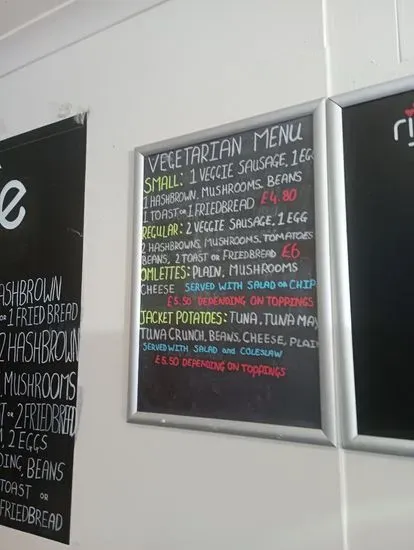 e
HASHBROWN
OR 1 FRIED BREAD
2 HASHBROWN
MUSHROOMS
OR 2 FRIEDBREAD
2 EGGS
BEANS
TOAST OR
FRIEDBREAD
VEGETARIAN MENU
SMALL: 1 VEGGIE SAUSAGE, 1 EGG
1 HASHBROWN, MUSHROOMS, BEANS
1 TOAST OR 1 FRIEDBREAD £4.80
REGULAR: 2 VEGGIE SAUSAGE, 1 EGG
2 HASHBROWNS, MUSHROOMS, TOMATOES
BEANS, 2 TOAST OR FRIEDBREAD £6
OMLETTES: PLAIN, MUSHROOMS
CHEESE SERVED WITH SALAD OR CHIP
£5.50 DEPENDING ON TOPPINGS
JACKET POTATOES: TUNA, TUNA MAY
TUNA CRUNCH, BEANS, CHEESE, PLAIN
SERVED WITH SALAD and COLESLAW
£5.50 DEPENDING ON TOPPINGS
ri